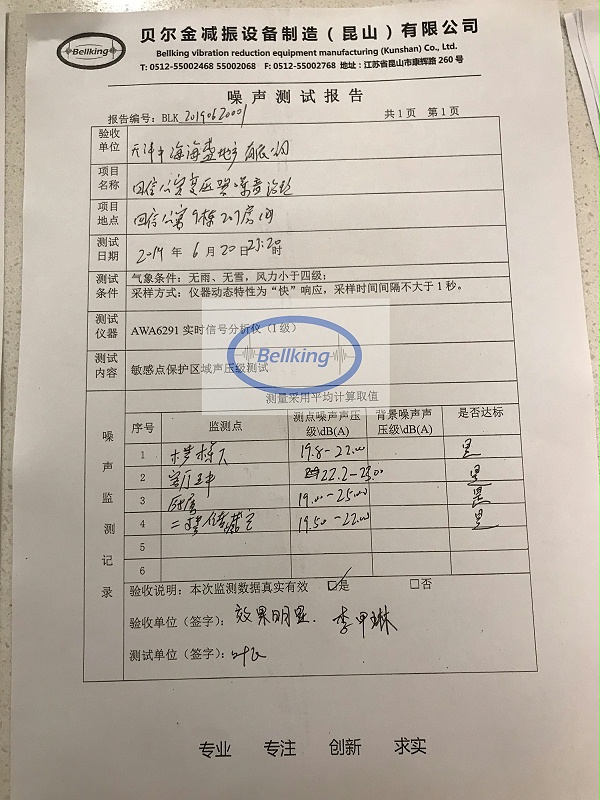 Bellking
贝尔金减振设备制造（昆山）有限公司
Bellking vibration reduction equipment manufacturing (Kunshan) Co., Ltd.
T: 0512-55002468 55002068 F: 0512-55002768 地址：江苏省昆山市康辉路 260 号
噪声测试报告
报告编号：BLK 20190620001 共 1 页 第 1 页
验收单位 天津中海海盛地产有限公司
项目名称 四信公寓变压器噪音治理
项目地点 四信公寓9栋207房间
测试日期 2019 年 6 月 20 日 21:20 时
测试条件 气象条件：无雨、无雪，风力小于四级；
采样方式：仪器动态特性为“快”响应，采样时间间隔不大于 1 秒。
测试仪器 AWA6291 实时信号分析仪（I 级）
Bellking
测试内容 敏感点保护区域声压级测试
测量采用平均计算取值
噪声监测记录
序号 监测点 测点噪声声压级\dB(A) 背景噪声声压级\dB(A) 是否达标
1 19.8-22.00 是
2 客厅 22.2-23.00 是
3 19.00-25.00 是
4 二楼 19.50-22.00 是
5
6
验收说明：本次监测数据真实有效 ☑是 □否
验收单位（签字）：效果明显. 李甲琳
测试单位（签字）：
专业 专注 创新 求实